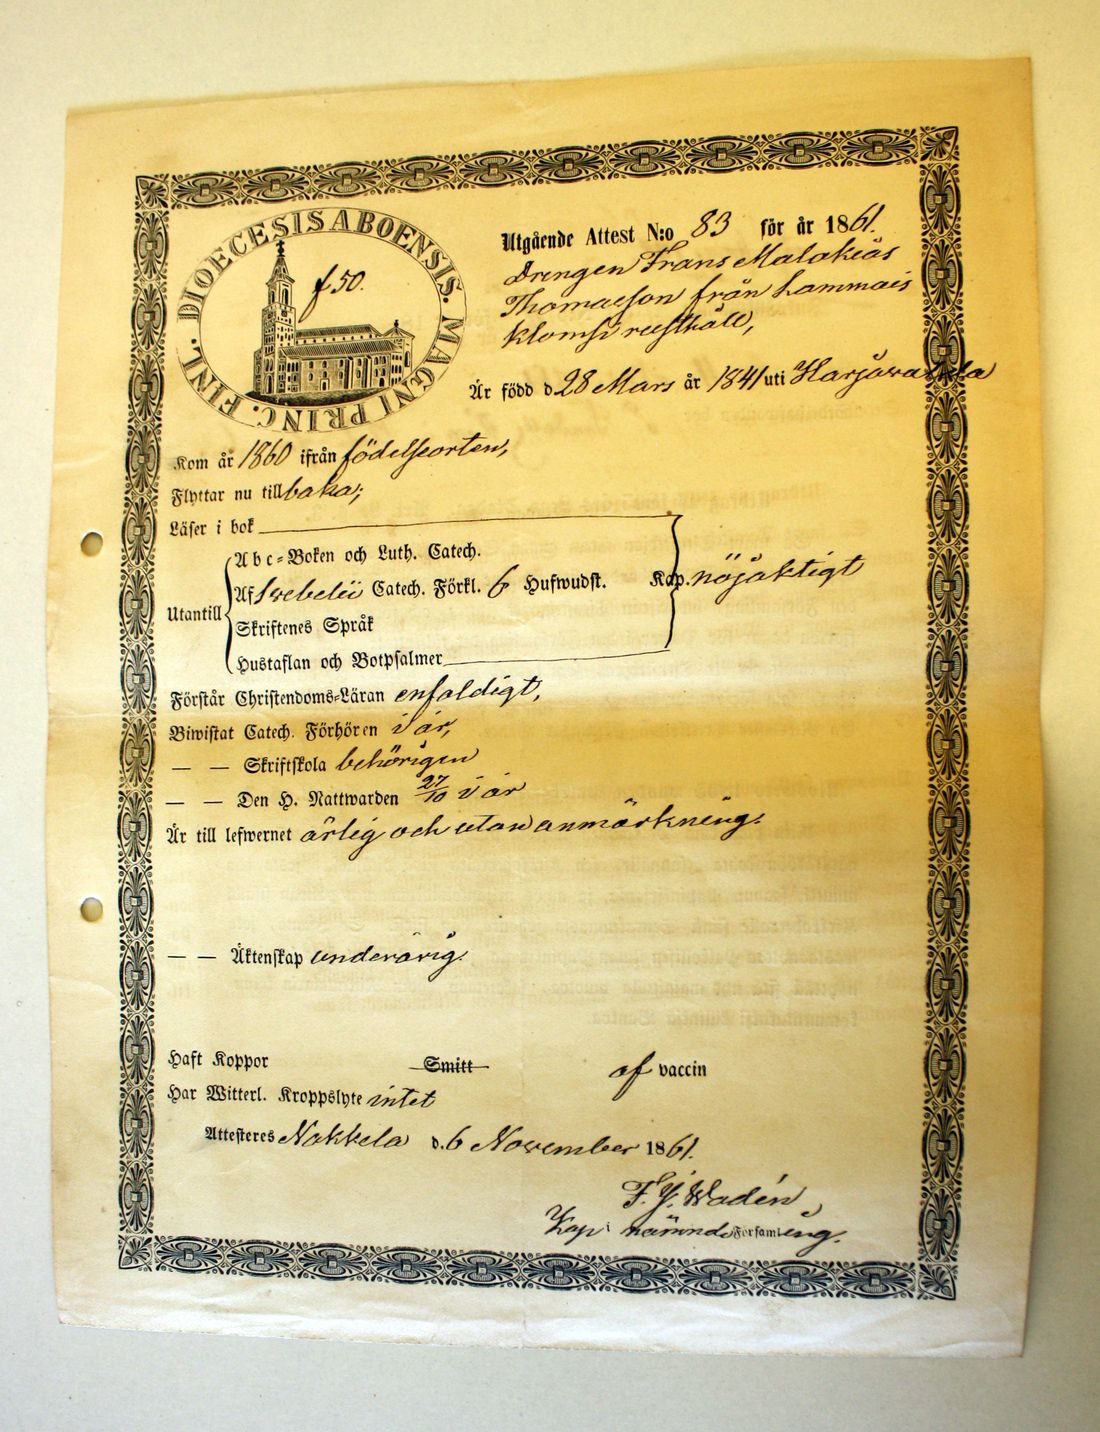 DIOECESIS ABOENSIS. MAGNI PRINC. FINL.
f 50.
Utgående Attest N:o 83 för år 1861.
Drengen Frans Malakias
Thomasson från Lammais
Klomsi rusthåll,
Är född d 28 Mars år 1841 uti Harjawalda
Kom år 1860 ifrån födelseorten,
Flyttar nu tillbaka;
Läser i bok
Abc-Boken och Luth. Catech.
Af Swebelii Catech. Förkl. 6 Hufwudst. Kap. nöjaktigt
Utantill
Skriftenes Språk
Hustaflan och Botpsalmer
Förstår Christendoms-Läran enfaldigt,
Biwistat Catech. Förhören i år,
— — Skriftskola behörigen
— — Den H. Nattwarden 27/10 i år
Är till lefwernet ärlig och utan anmärkning.
— — Äktenskap underårig.
Haft Koppor Smitt af vaccin
Har Witterl. Kroppslyte intet
Attesteres Nakkela d. 6 November 1861.
Wadén
Kap i nämnde Församling.